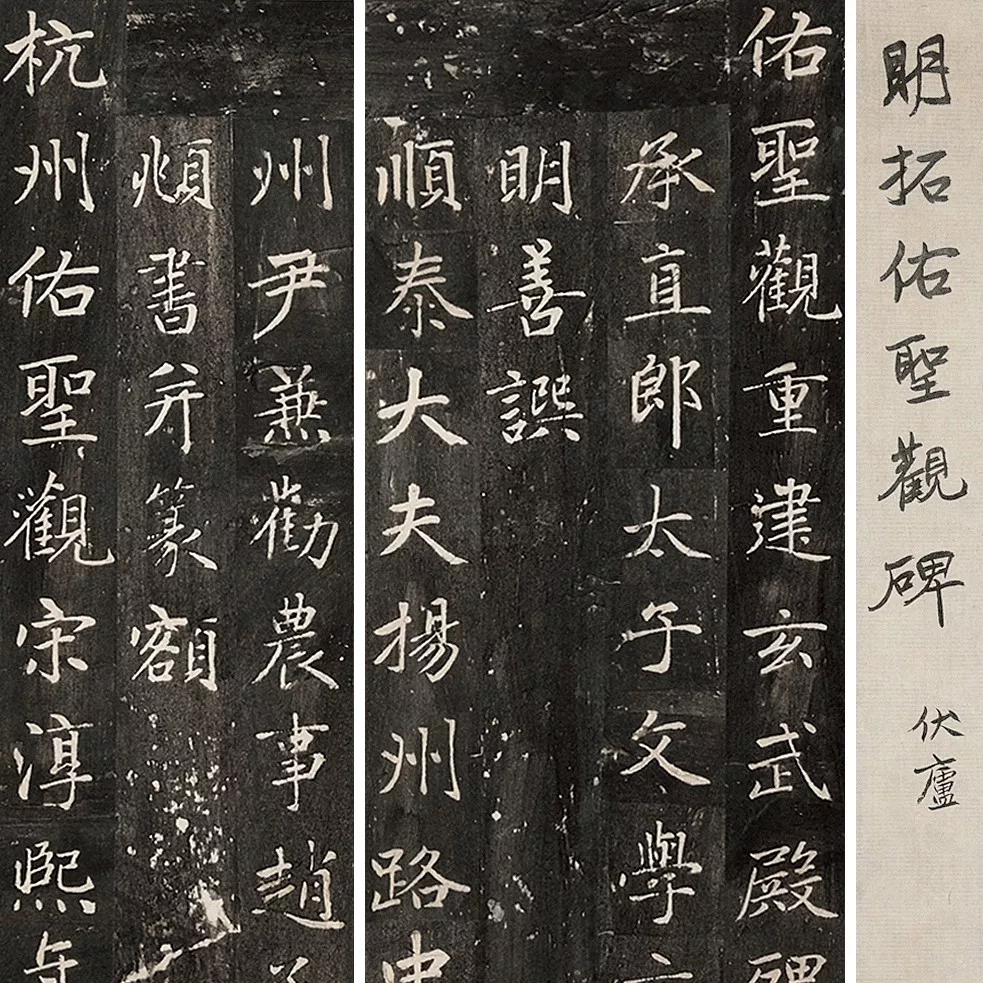 明拓佑聖觀碑
伏廬
佑聖觀重建玄武殿碑
承直郎太子文學
明善譔
順泰大夫揚州路中
州尹兼勸農事趙
頫書并篆額
杭州佑聖觀宋淳熙